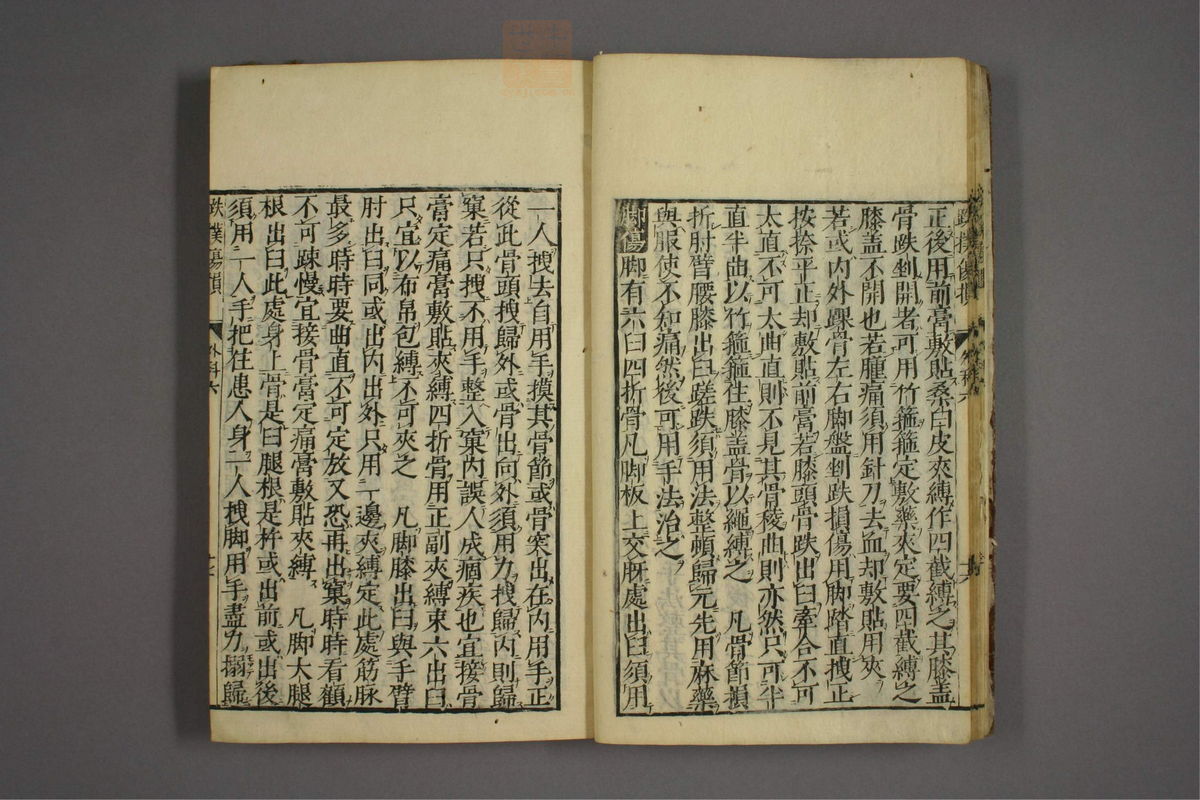 正後用前膏敷貼桑白皮夾縛作四截縛之其膝蓋
骨跌剉開者可用竹箍箍定敷藥夾定要四截縛之
膝蓋不開也若腫痛須用針刀去血却敷貼用夾
若或内外踝骨左右脚盤剉跌損傷用脚踏直拽正
按捺平正却敷貼前膏若膝頭骨跌出臼牽合不可
太直不可太曲直則不見其骨稜曲則亦然只可半
直半曲以竹箍箍住膝蓋骨以繩縛之　凡骨節損
折肘臂腰膝出臼蹉跌須用法整頓歸元先用麻藥
與服使不知痛然後可用手法治之
脚傷脚有六臼四折骨凡脚板上交䏶處出臼須用
一人拽去自用手摸其骨節或骨突出在内用手正
從此骨頭拽歸外或骨出向外須用力拽歸内則歸
窠若只拽不用手整入窠内誤人成痼疾也宜接骨
膏定痛膏敷貼夾縛四折骨用正副夾縛束六出臼
只宜以布帛包縛不可夾之　凡脚膝出臼與手臂
肘出臼同或出内出外只用一邊夾縛定此處筋脉
最多時時要曲直不可定放又恐再出窠時時看顧
不可疎慢宜接骨膏定痛膏敷貼夾縛　凡脚大腿
根出臼此處身上骨是臼腿根是杵或出前或出後
須用一人手把住患人身一人拽脚用手盡力搦歸
跌撲傷損　外科六